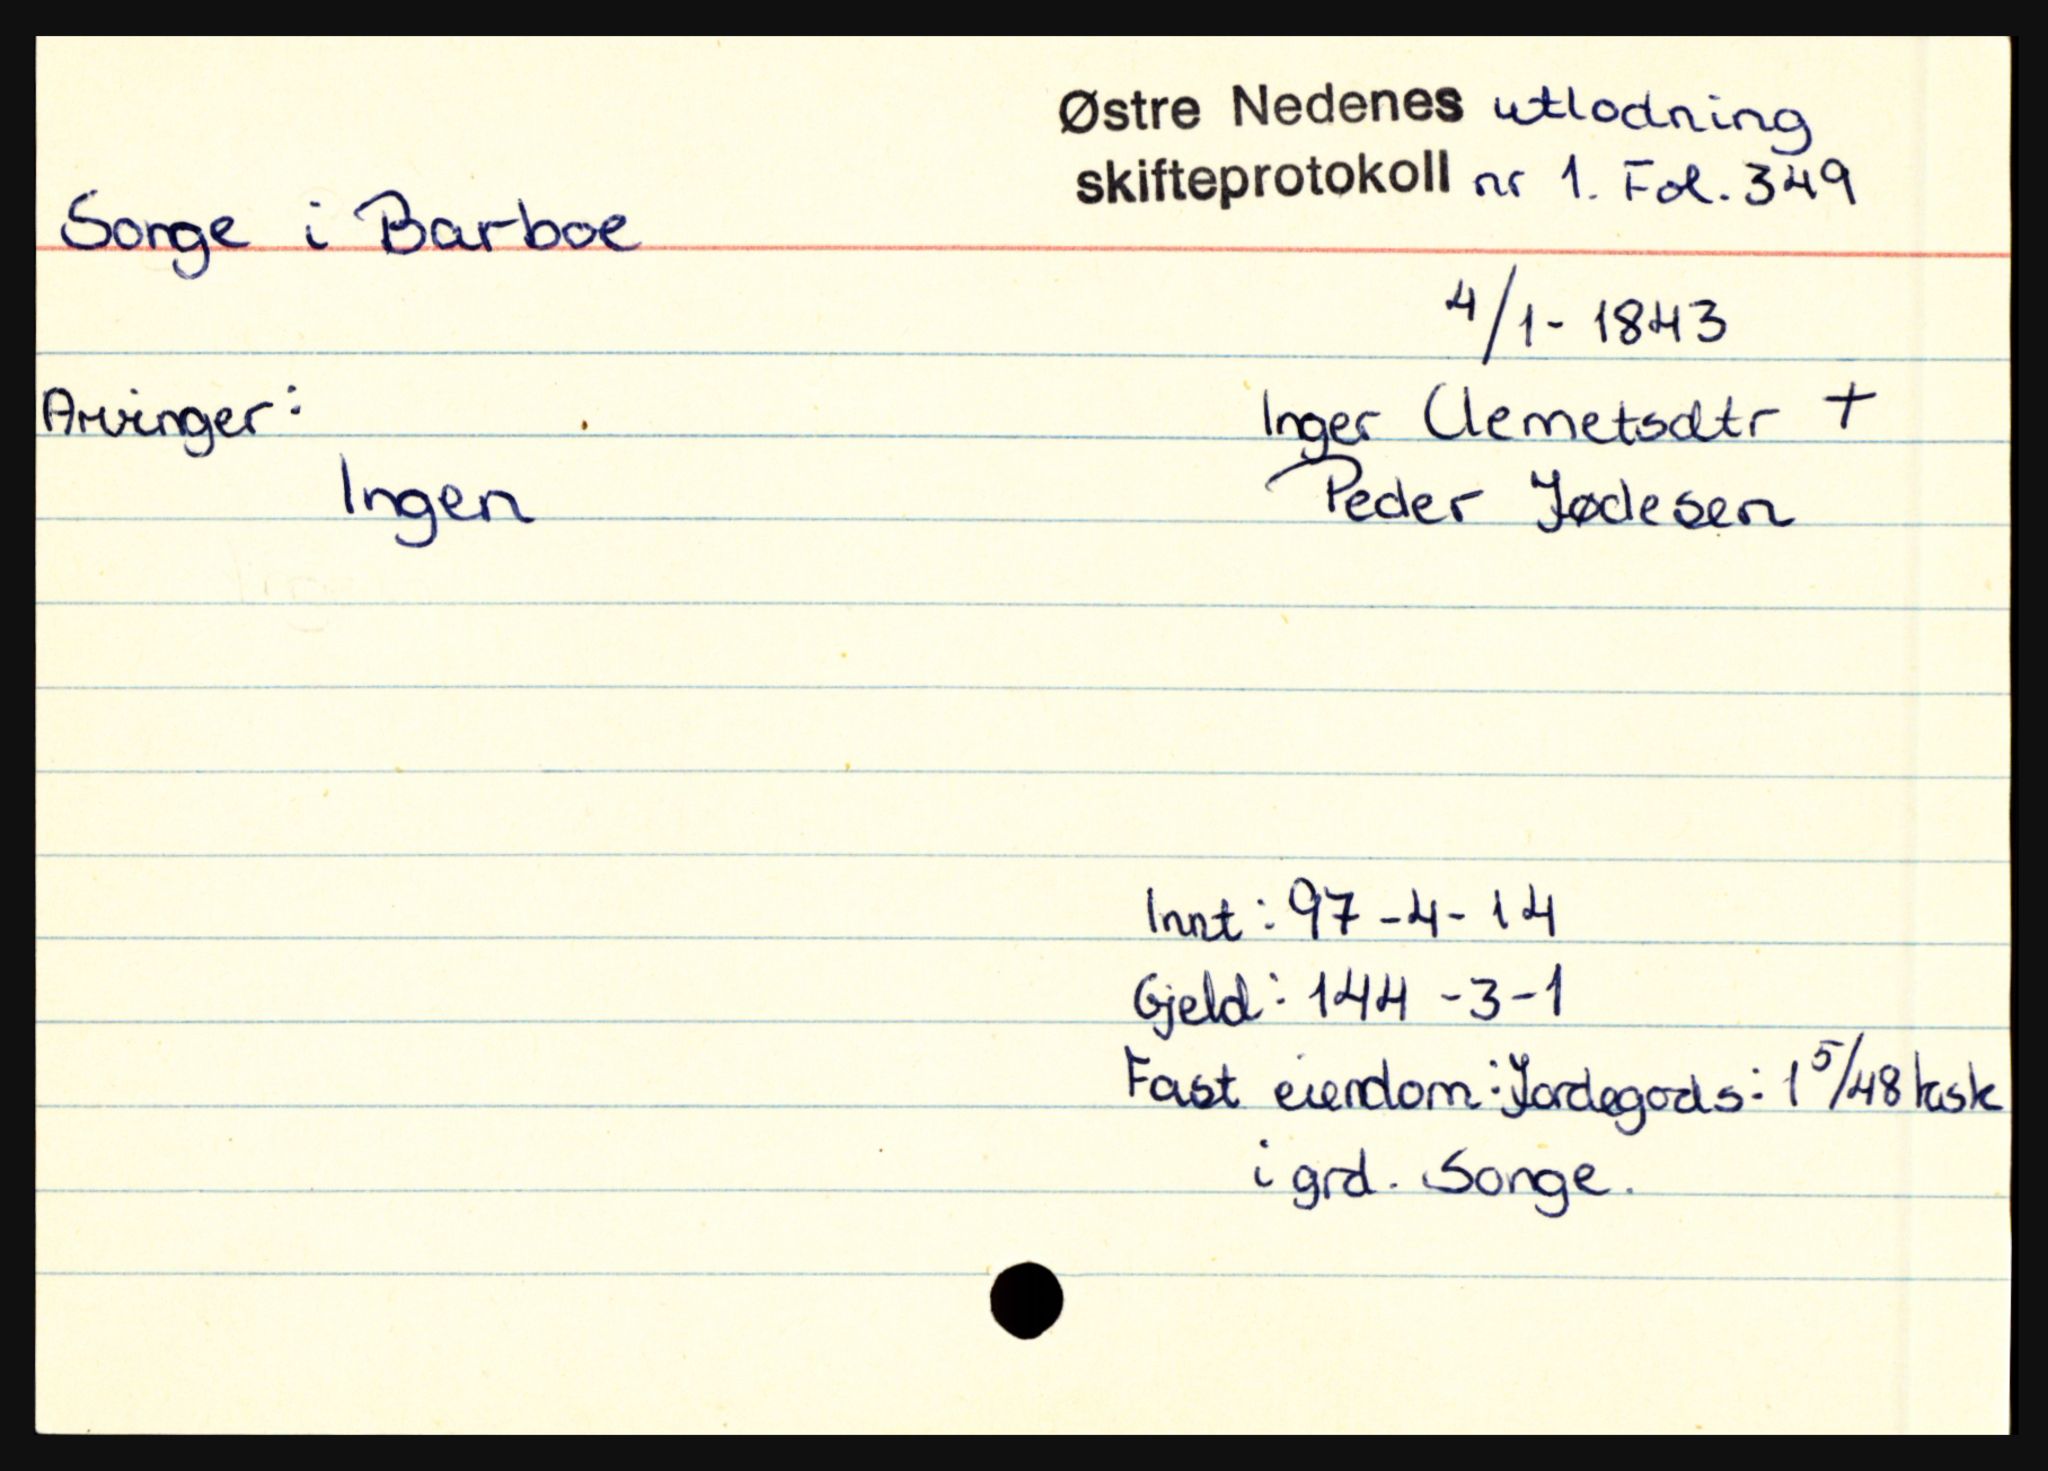 Østre Nedenes utlodning
skifteprotokoll nr 1. Fol. 349
Songe i Barboe
4/1- 1843
Arvinger:
Inger Clemetsdtr +
Ingen
Peder Jødesen
Innt: 97-4-14
Gjeld: 144-3-1
Fast eiendom: Jordegods: 1 5/48 kask
i grd. Songe.